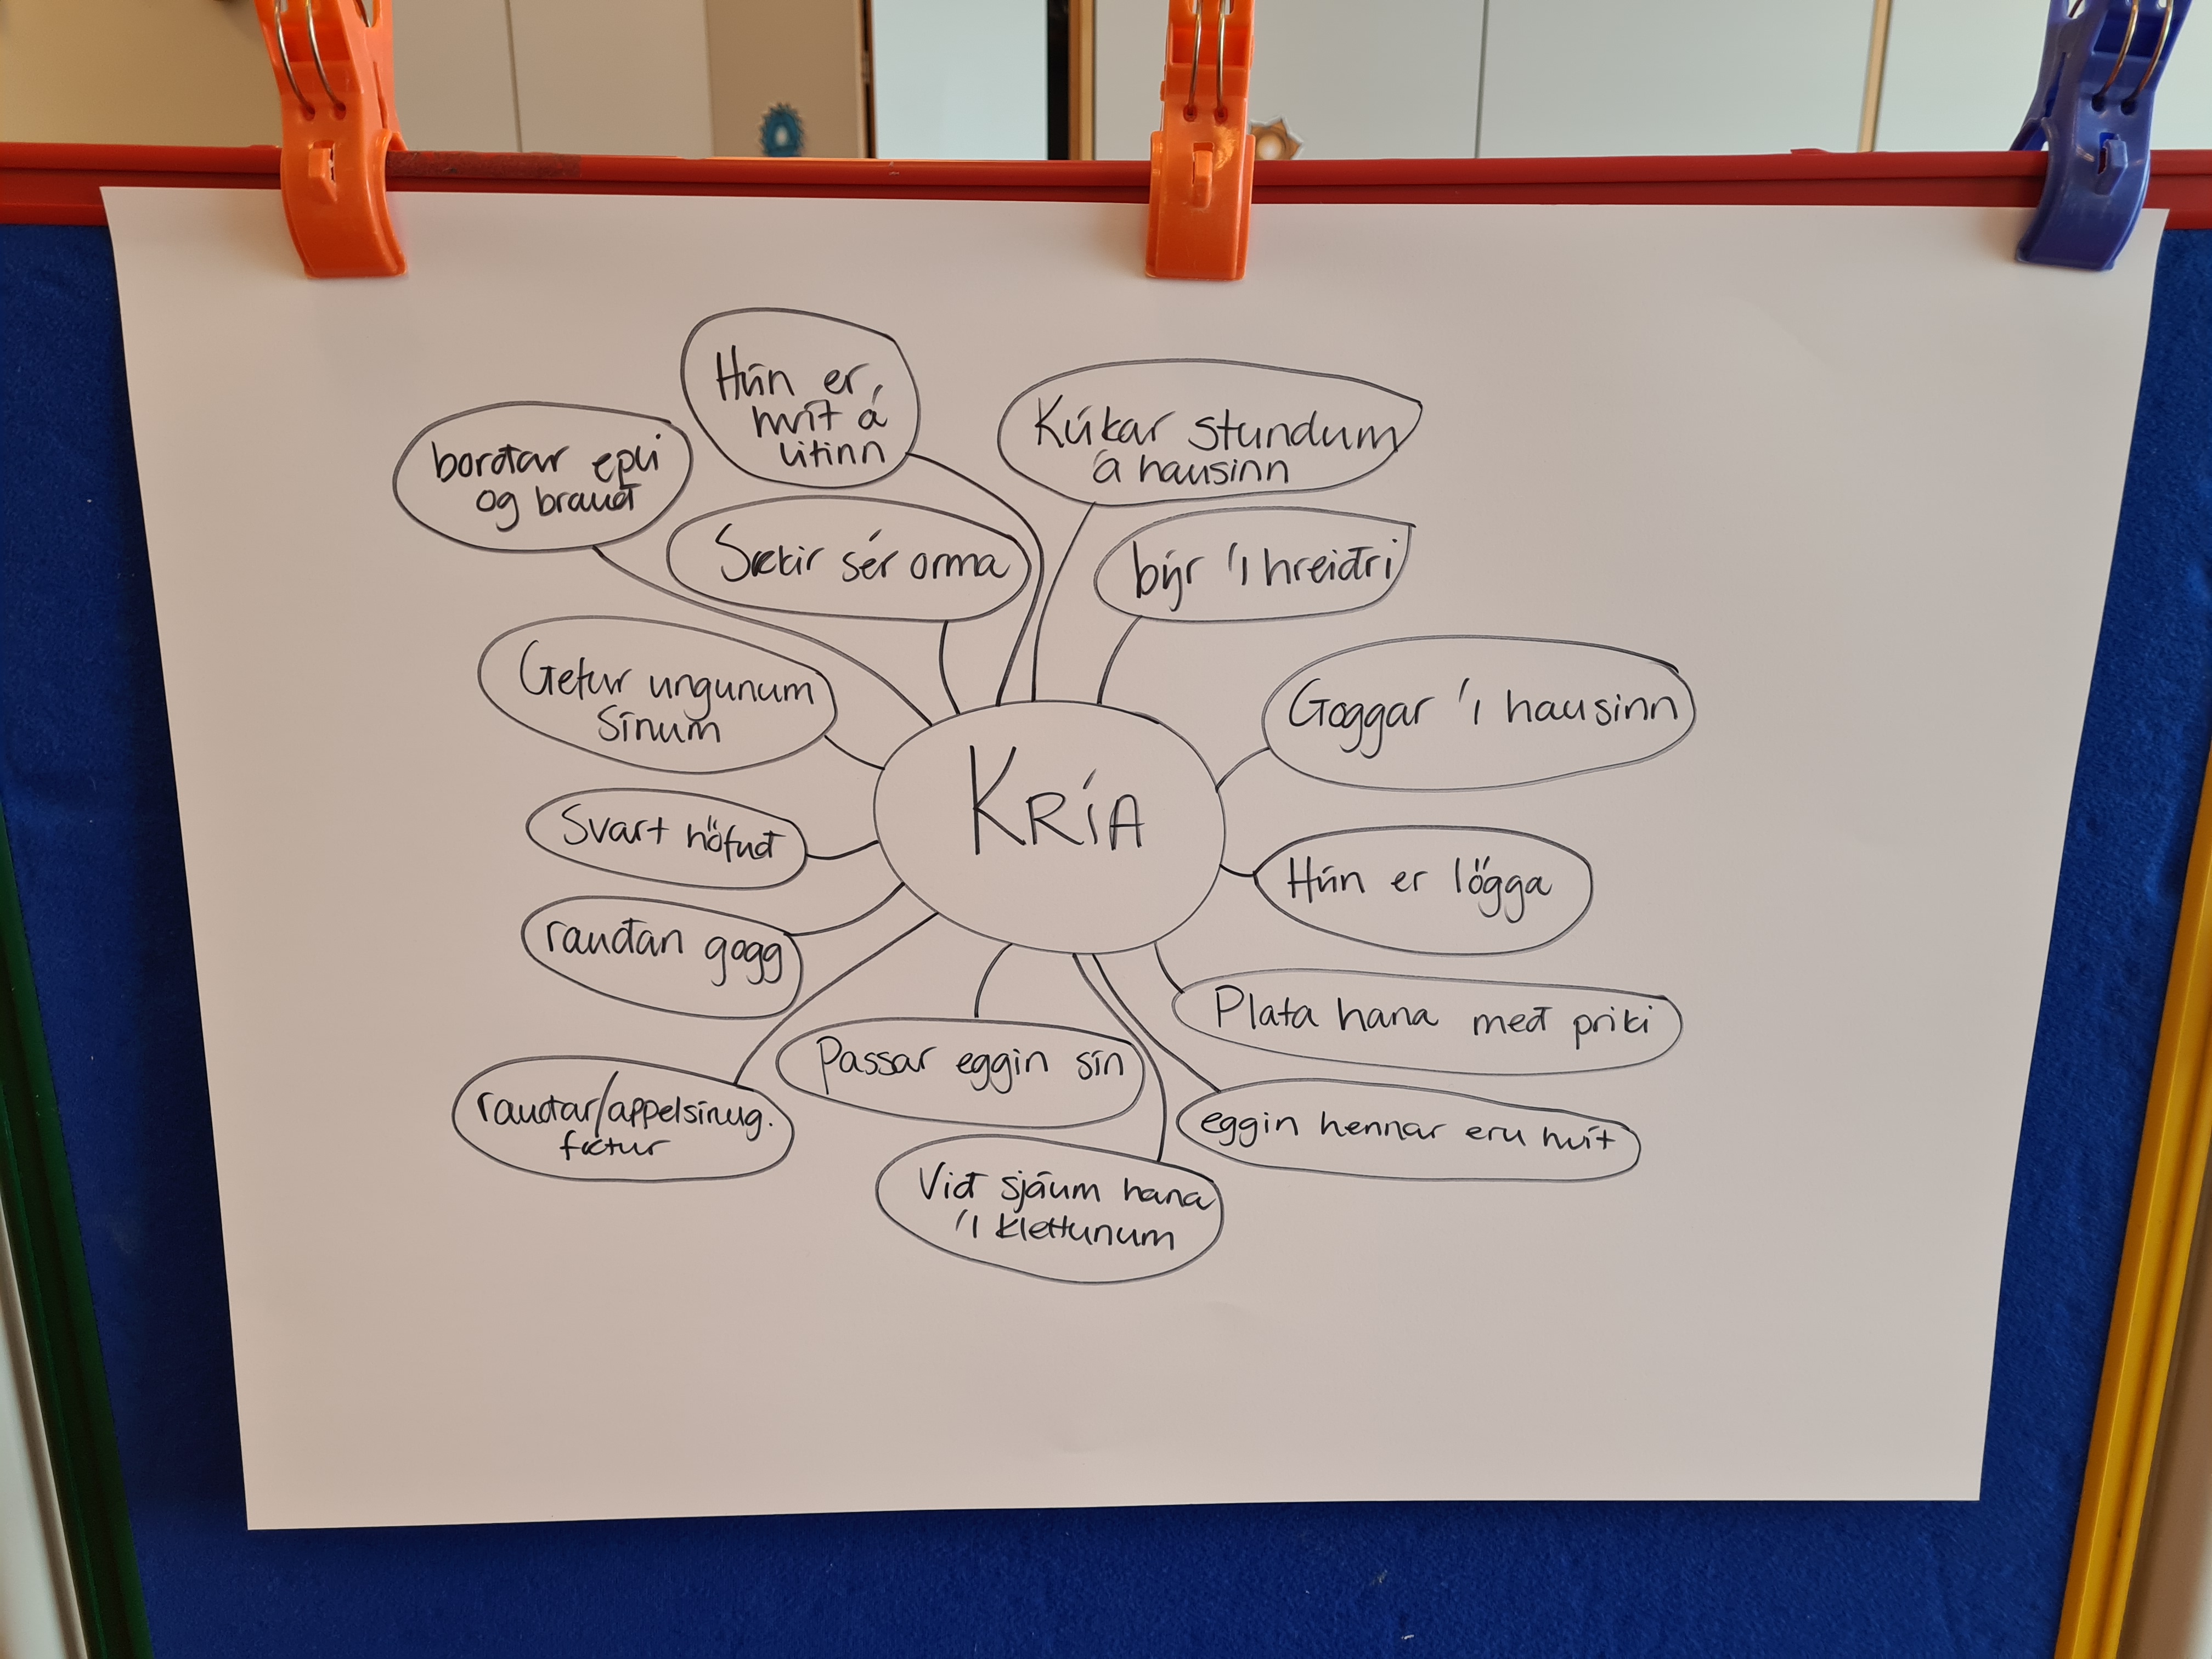 Hún er
hvít á
litinn
Kúkar stundum
á hausinn
borðar epli
og brauð
Sækir sér orma
býr í hreiðri
Getur ungunum
sínum
Goggar í hausinn
KRÍA
Svart höfuð
Hún er lögga
rauðan gogg
Plata hana með priki
Passar eggin sín
rauðar/appelsínug.
fætur
eggin hennar eru hvít
Við sjáum hana
í klettunum